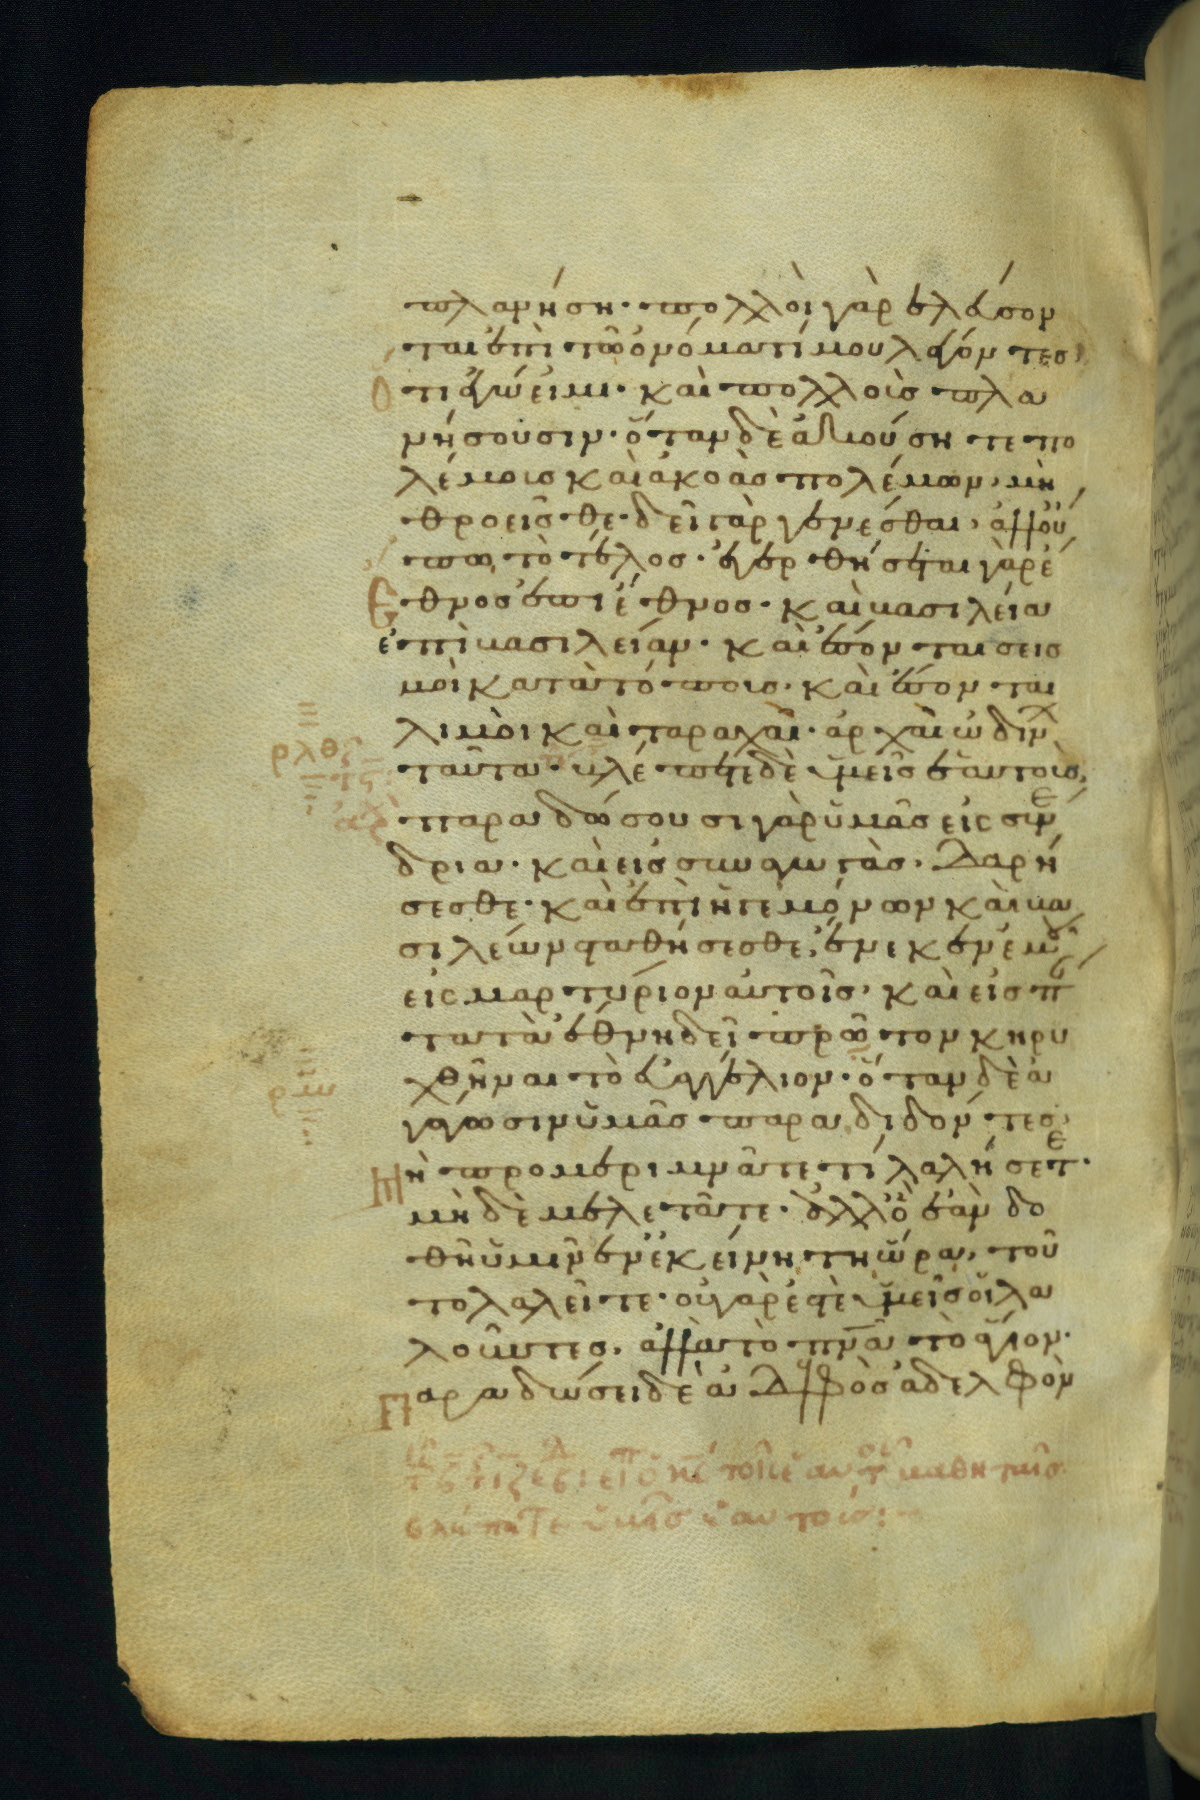 πλανήση· πολλοὶ γὰρ ἐλεύσον
ται ἐπὶ τῶ ὀνόματί μου λέγοντες
ὅτι ἐγώ εἰμι· καὶ πολλοὺς πλα
νήσουσιν· ὅταν δὲ ἀκούσητε πο
λέμοις καὶ ἀκοὰς πολέμων, μὴ
θροεῖσθε· δεῖ γὰρ γενέσθαι, ἀλλ' οὔ
πω τὸ τέλος· ἐγερθήσεται γὰρ ἔ
Εθνος ἐπὶ ἔθνος· καὶ βασιλεία
ἐπὶ βασιλείαν· καὶ ἔσονται σεισ
μοὶ κατὰ τόπους· καὶ ἔσονται
λιμοὶ καὶ ταραχαὶ· ἀρχαὶ ὠδίν
ταῦτα· βλέπετε δὲ ὑμεῖς ἑαυτούς,
παραδώσουσι γὰρ ὑμᾶς εἰς συνέ
δρια· καὶ εἰς συναγωγὰς· δαρή
σεσθε· καὶ ἐπὶ ἡγεμόνων καὶ βα
σιλέων σταθήσεσθε, ἕνεκεν ἐμοῦ
εἰς μαρτύριον αὐτοῖς, καὶ εἰς πάν
τα τὰ ἔθνη δεῖ πρῶτον κηρυ
χθῆναι τὸ εὐαγγέλιον· ὅταν δὲ ἀ
γάγωσιν ὑμᾶς παραδιδόντες,
μὴ προμεριμνᾶτε τί λαλήσετε·
μὴ δὲ μελετᾶτε· ἀλλ' ὃ ἐὰν δο
θῆ ὑμῖν ἐν ἐκείνη τῆ ὥρα, τοῦ
το λαλεῖτε· οὐ γάρ ἐστὲ ὑμεῖς οἱ λα
λοῦντες, ἀλλὰ τὸ πνα τὸ ἅγιον·
Παραδώσει δὲ ἀδελφὸς ἀδελφὸν
μαθηταῖς